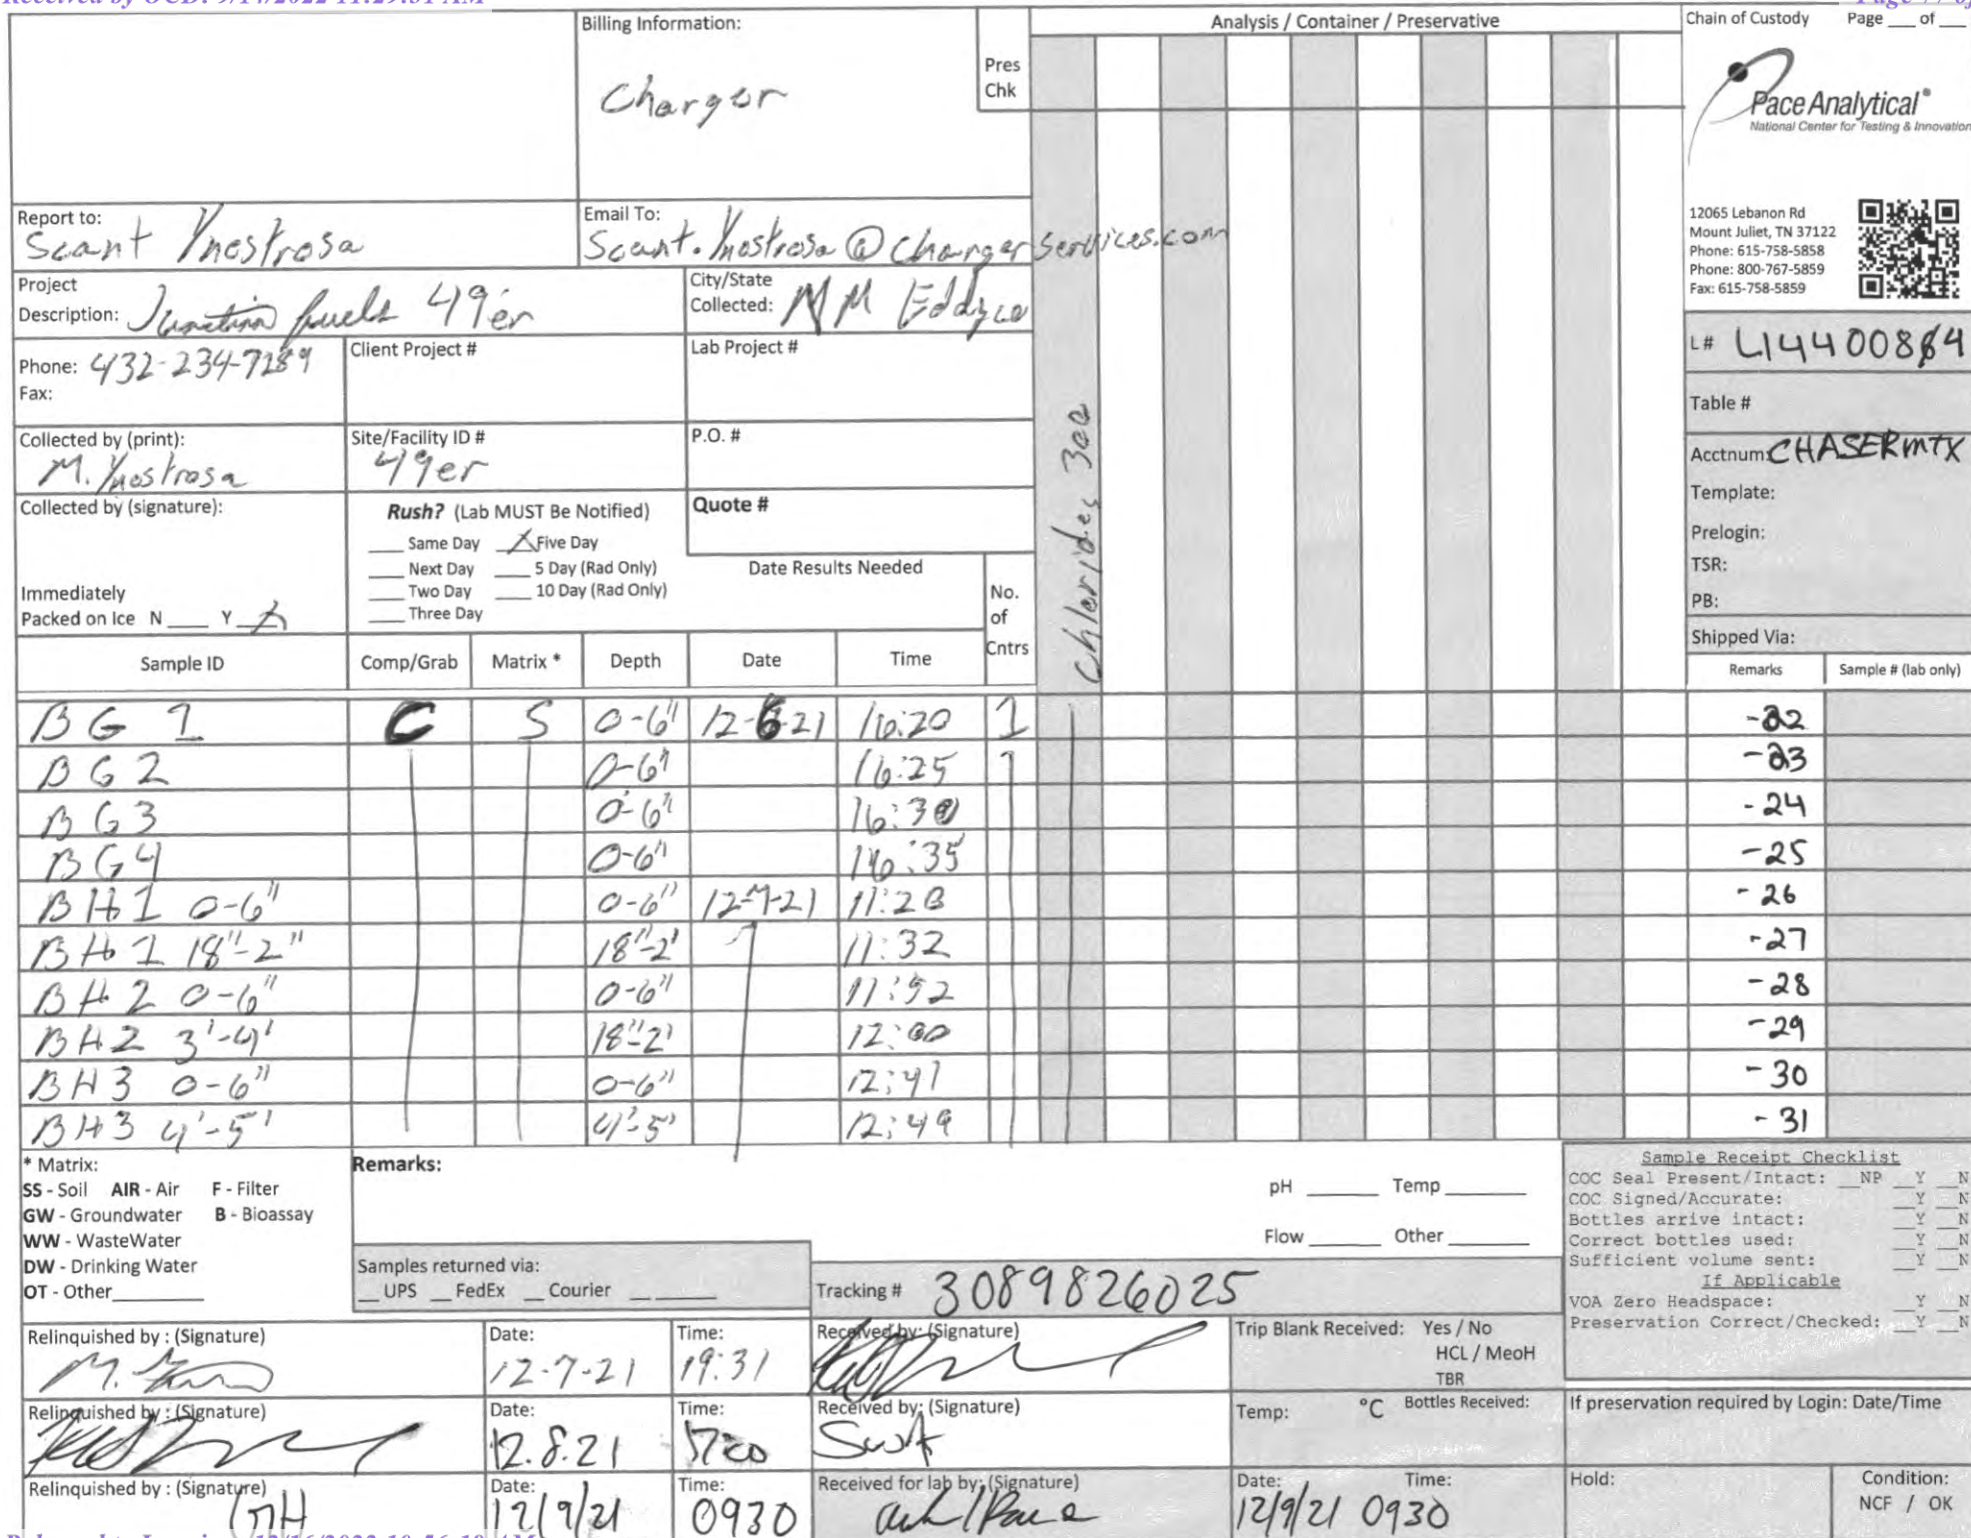 Received by OCD: 9/14/2022 11:29:51 AM
Billing Information:
Charger
Pres
Chk
Analysis / Container / Preservative
Chain of Custody Page ___ of ___
Pace Analytical®
National Center for Testing & Innovation
12065 Lebanon Rd
Mount Juliet, TN 37122
Phone: 615-758-5858
Phone: 800-767-5859
Fax: 615-758-5859
Report to:
Scant Ynostrosa
Email To:
Scant.Ynostrosa@chargerservices.com
Project
Description: Junction fuels 49er
City/State
Collected: NM Eddy co
L# L1440084
Phone: 432-234-7289
Fax:
Client Project #
Lab Project #
Table #
Collected by (print):
M. Ynostrosa
Site/Facility ID #
49er
P.O. #
Chlorides 300
Acctnum: CHASERMTX
Template:
Prelogin:
TSR:
PB:
Shipped Via:
Collected by (signature):
Rush? (Lab MUST Be Notified)
___ Same Day X Five Day
___ Next Day ___ 5 Day (Rad Only)
___ Two Day ___ 10 Day (Rad Only)
___ Three Day
Quote #
Date Results Needed
Immediately
Packed on Ice N ___ Y X
No.
of
Cntrs
Sample ID Comp/Grab Matrix * Depth Date Time Remarks Sample # (lab only)
BG 1 C S 0-6" 12-6-21 16:20 1 -22
BG2 0-6" 16:25 -23
BG3 0-6" 16:30 -24
BG4 0-6" 16:35 -25
BH1 0-6" 0-6" 12-7-21 11:20 -26
BH1 18"-2" 18"-2' 11:32 -27
BH2 0-6" 0-6" 11:52 -28
BH2 3'-4' 18"-2' 12:00 -29
BH3 0-6" 0-6" 12:41 -30
BH3 4'-5' 4'-5' 12:49 -31
* Matrix:
SS - Soil AIR - Air F - Filter
GW - Groundwater B - Bioassay
WW - WasteWater
DW - Drinking Water
OT - Other___
Remarks:
pH ___ Temp ___
Flow ___ Other ___
Samples returned via:
__ UPS __ FedEx __ Courier __ ___
Tracking # 3089826025
Sample Receipt Checklist
COC Seal Present/Intact: __NP __Y __N
COC Signed/Accurate: __Y __N
Bottles arrive intact: __Y __N
Correct bottles used: __Y __N
Sufficient volume sent: __Y __N
If Applicable
VOA Zero Headspace: __Y __N
Preservation Correct/Checked: __Y __N
Relinquished by : (Signature)
Date:
12-7-21
Time:
19:31
Received by: (Signature)
Trip Blank Received: Yes / No
HCL / MeoH
TBR
Relinquished by : (Signature)
Date:
12.8.21
Time:
1700
Received by: (Signature)
Temp: °C Bottles Received:
If preservation required by Login: Date/Time
Relinquished by : (Signature)
Date:
12/9/21
Time:
0930
Received for lab by: (Signature)
Date: Time:
12/9/21 0930
Hold:
Condition:
NCF / OK